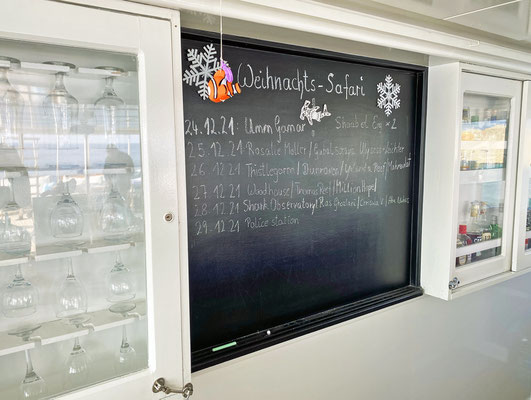 Weihnachts-Safari
24.12.21: Umm Gamar Shaab el Erg × 2
25.12.21 Rosalie Moller / Gubal
26.12.21 Thistlegorm / Dunraven / Yolanda Reef
27.12.21 Woodhouse / Thomas Reef / Million Hope /
28.12.21 Shark Observatory / Ras Ghozlani / / Abu Nuhas
29.12.21 Police station